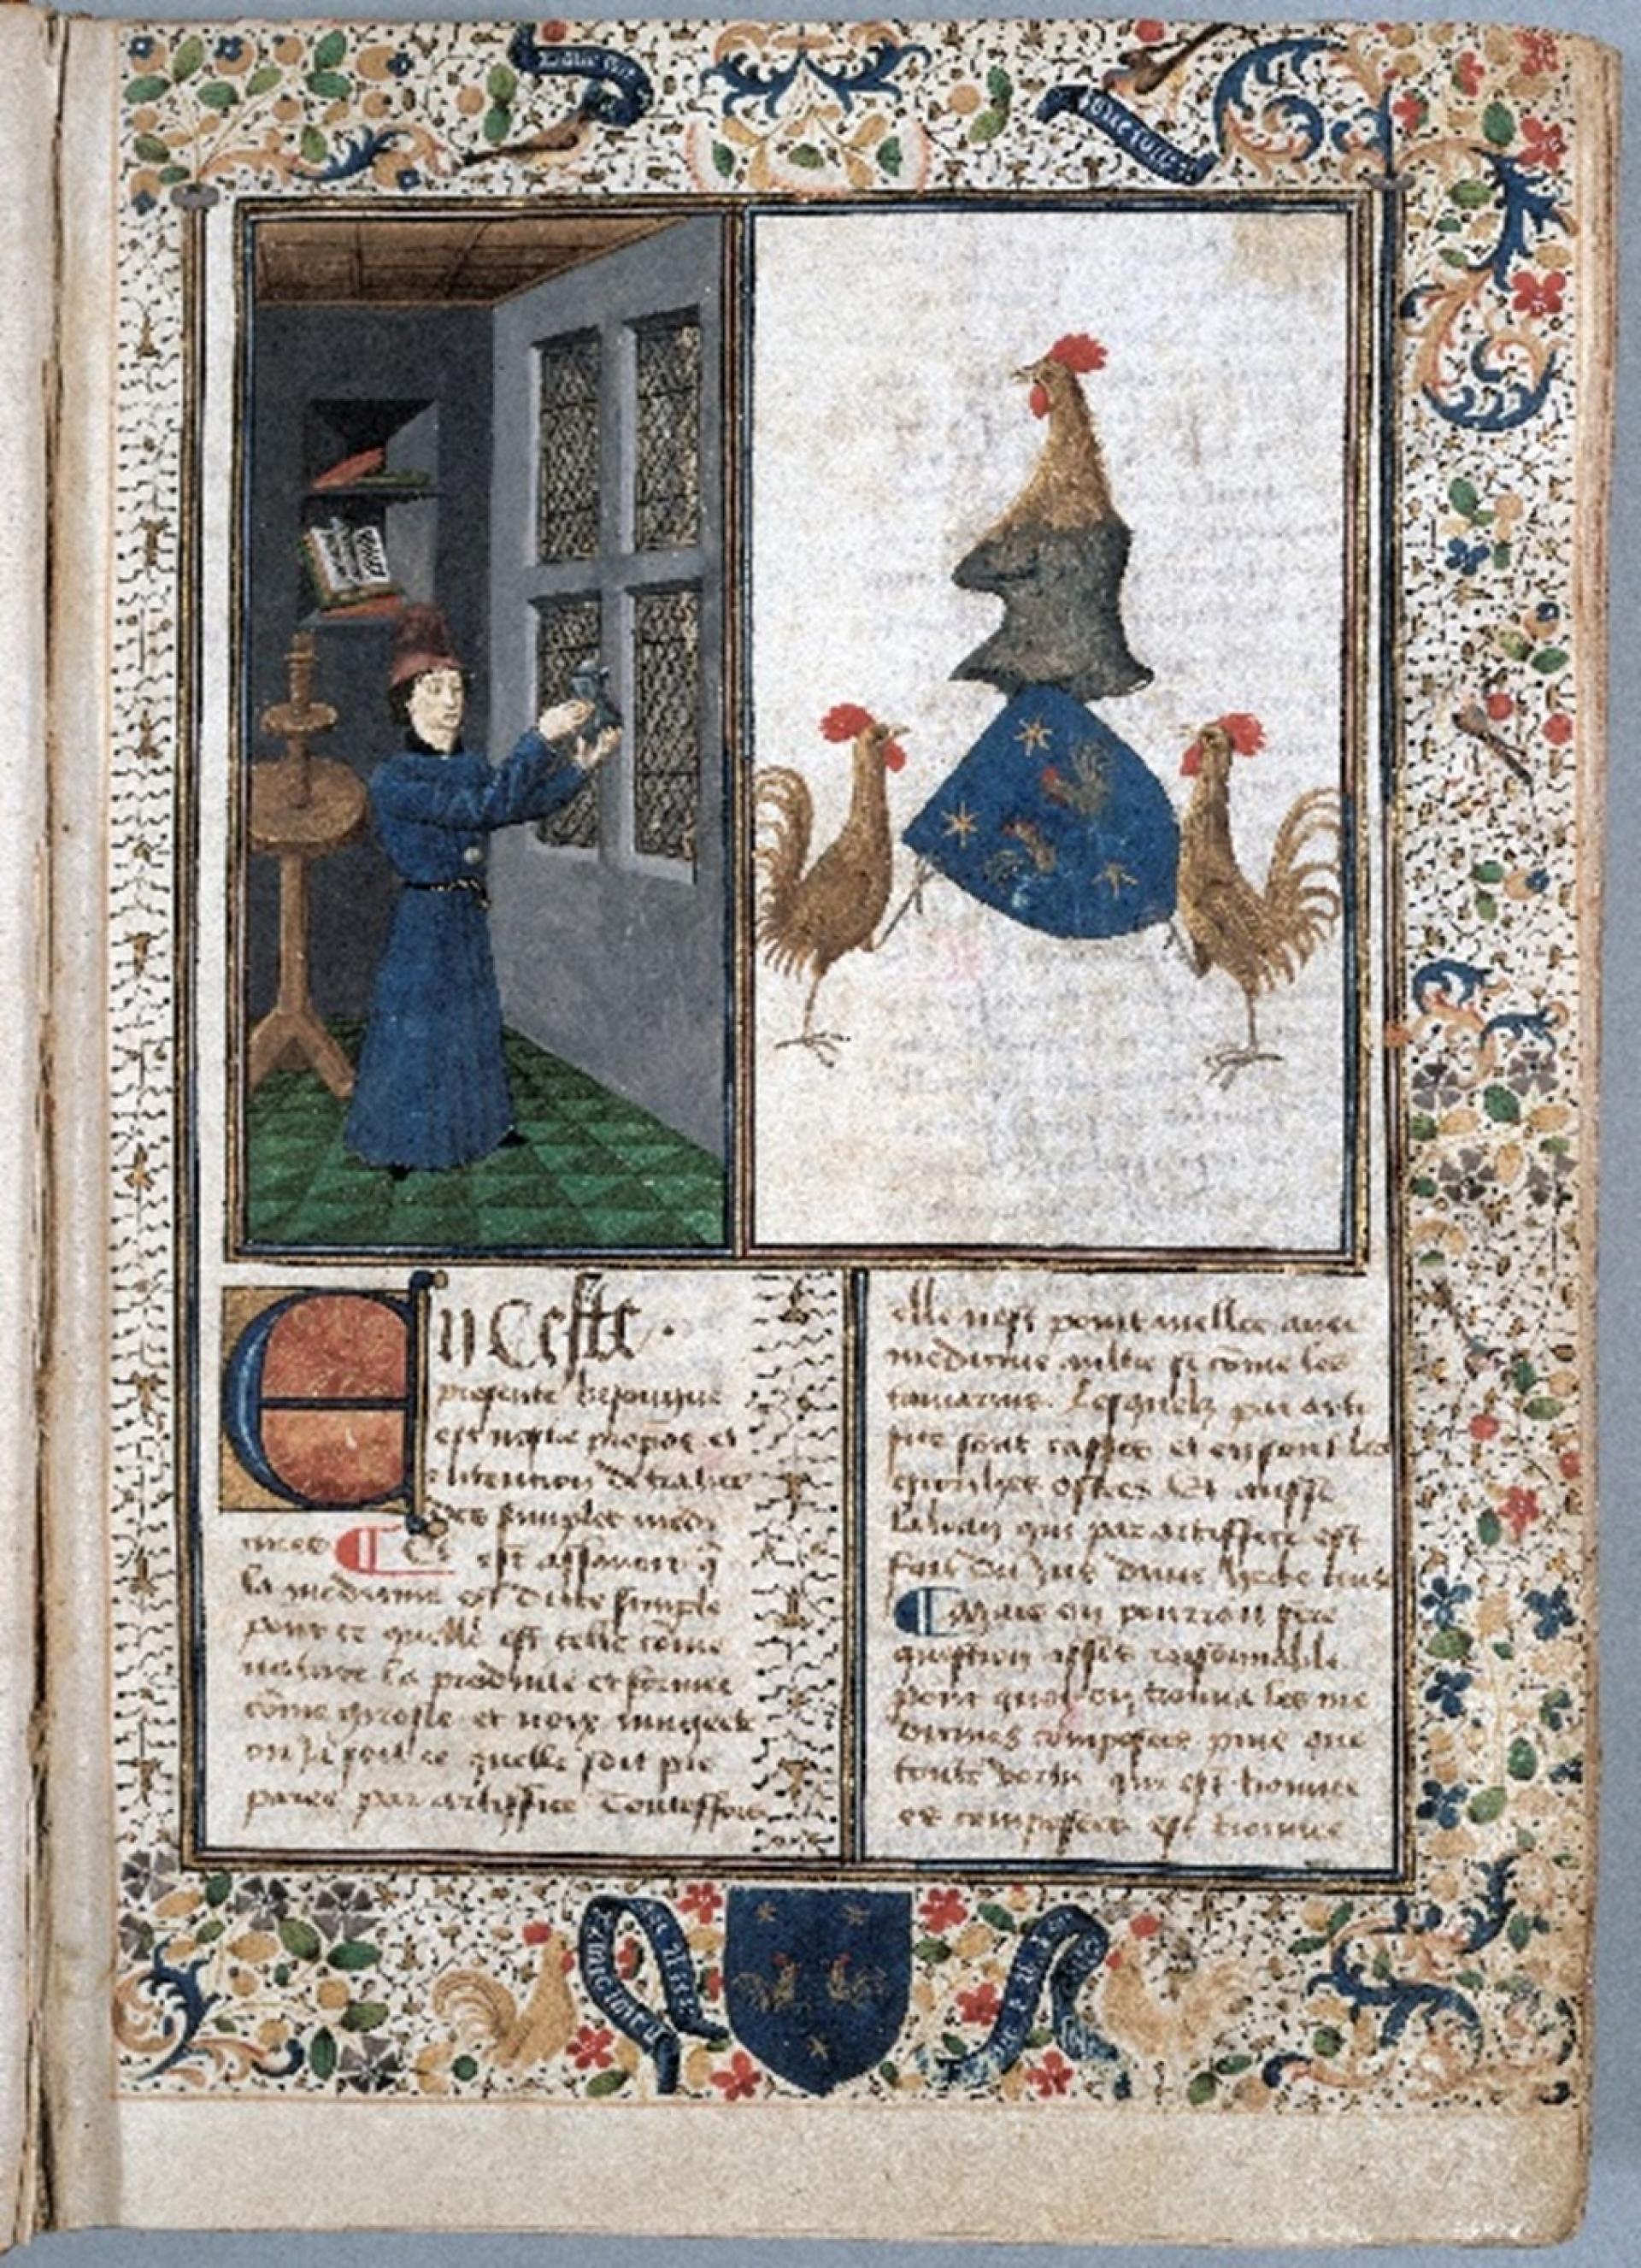 En Ceste
presente besoingne
est nostre propos et
intencion de traiter
des simples medi
cines Et est assavoir q̄
la medicine est dicte simple
pour ce quelle est telle cōme
nature la produite et formee
cōme girofle et noix muguete
ou Ja soit ce quelle soit pre
paree par artiffice Touteffois
elle nest point mellee avec
medicine aultre si cōme les
tamarins. Lesquelz par arti
fice sont casses et en sont les
ostees Et aussi
qui par artiffice est
fais du Jus dune herbe
Mais on pourroit fere
question asses raisonnable
pour quoy on trouva les me
dicines composees puis que
toute vertu qui est trouvee
es composees est trouvee